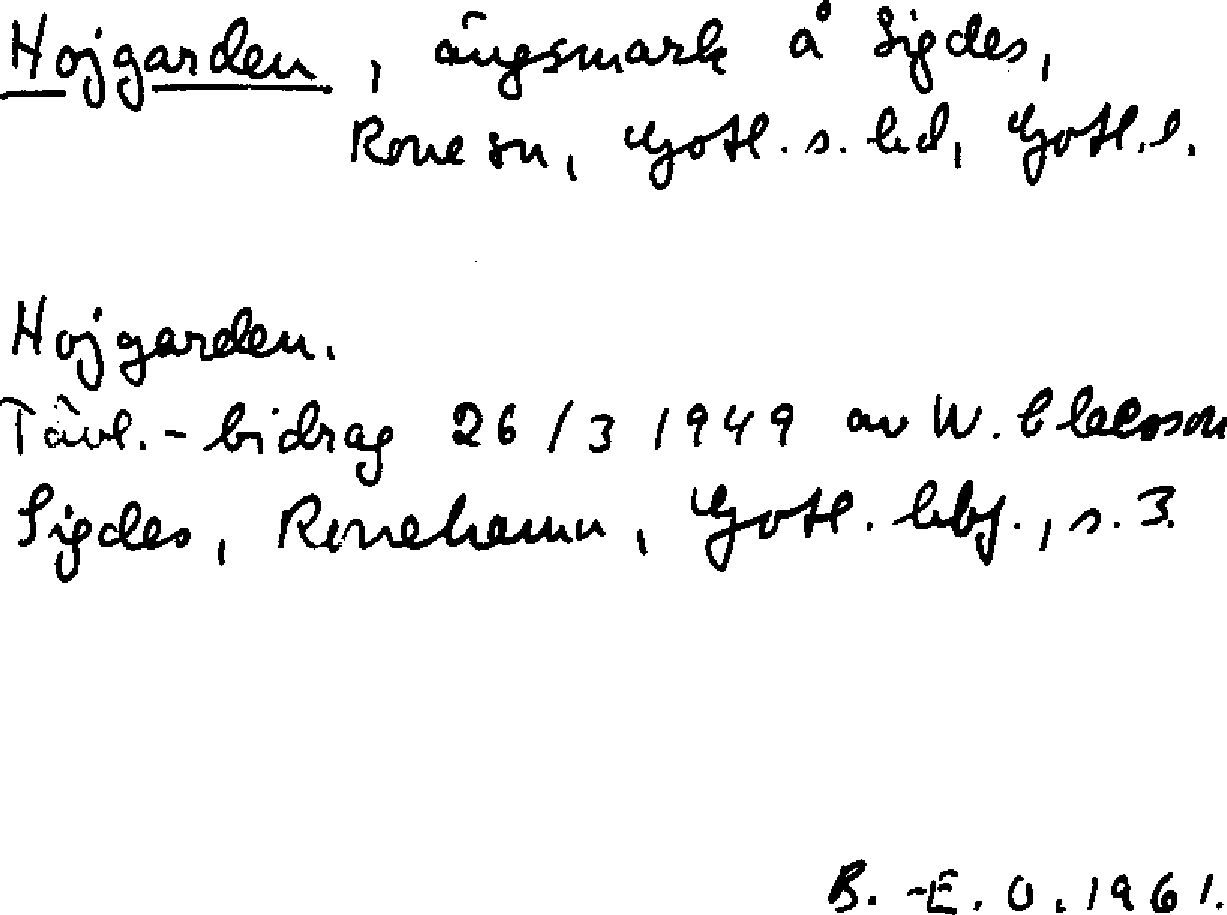 Hojgarden, ängsmark å Sigdes,
Rone sn, Gotl. s. hd, Gotl. l.
Hojgarden.
Tävl.-bidrag 26/3 1949 av W. Claesson
Sigdes, Ronehamn, Gotl. hbf., s. 3.
B.-E. O. 1961.